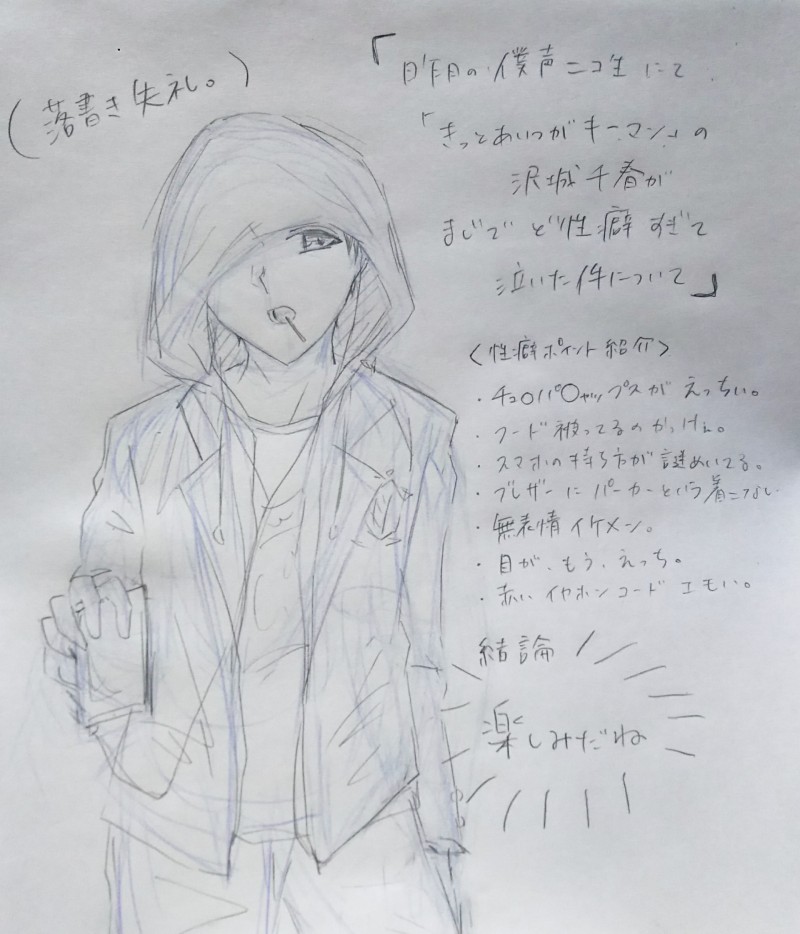 (落書き失礼。)
「昨月の僕声ニコ生にて
「きっとあいつがキーマン」の
沢城千春が
まじでど性癖すぎて
泣いた件について」
〈性癖ポイント紹介〉
・チュ○パ○ャップスがえっちい。
・フード被ってるのかっけぇ。
・スマホの持ち方が謎めいてる。
・ブレザーにパーカーとバラ着こなし
・無表情イケメン。
・目が、もう、えっち。
・赤いイヤホンコードエモい。
結論
楽しみだね